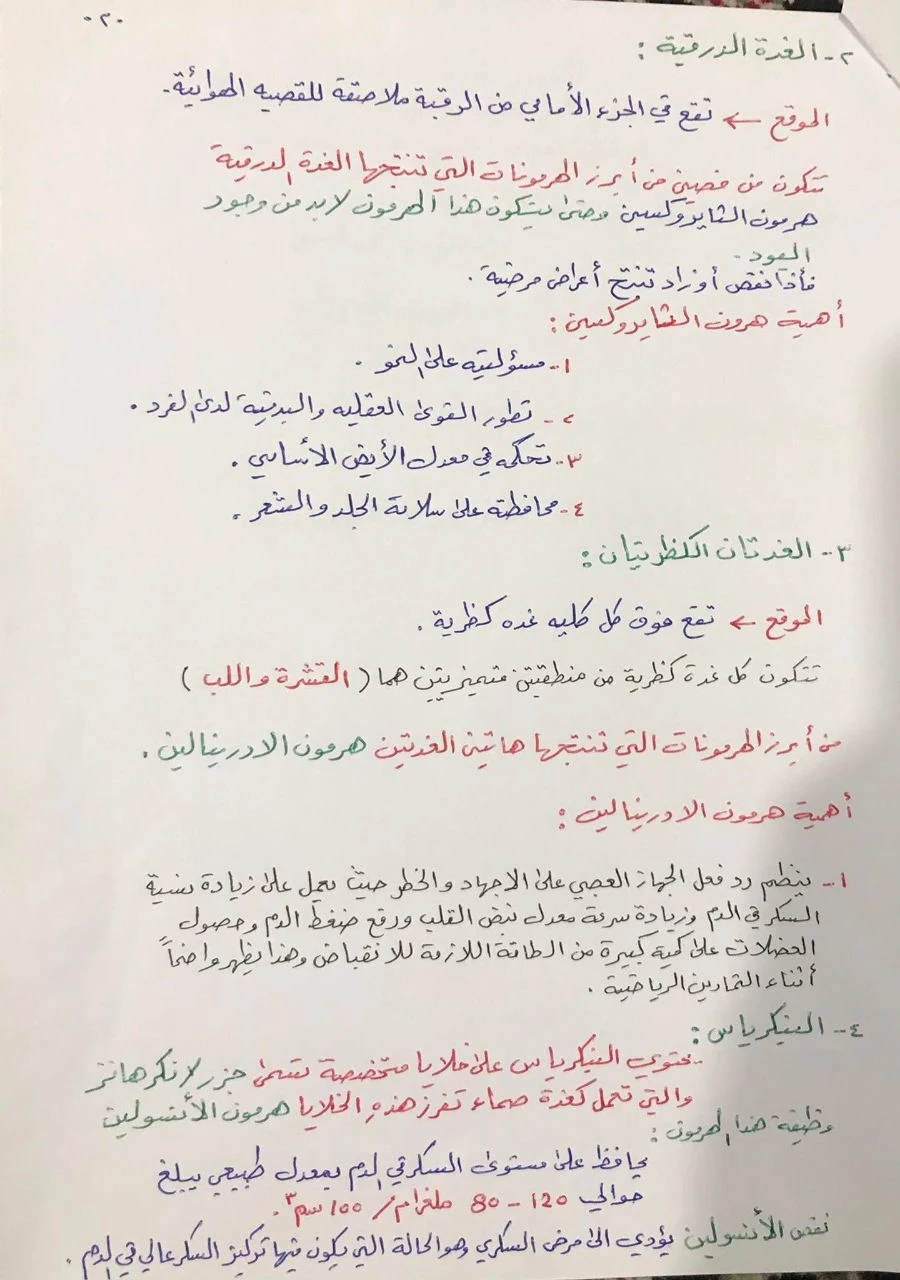 ٢٠
٢- الغدة الدرقية :
الموقع ← تقع في الجزء الأمامي من الرقبة ملاصقة للقصبه الهوائية.
تتكون من فصين من أبرز الهرمونات التي تنتجها الغدة الدرقية
هرمون الثايروكسين وحتى يتكون هذا الهرمون لابد من وجود
اليود .
فأذا نقص أو زاد تنتج أعراض مرضية .
أهمية هرمون الثايروكسين :
١- مسؤليته على النمو .
٢- تطور القوى العقليه والبدنية لدى الفرد .
٣- تحكمه في معدل الأيض الأساسي .
٤- محافظته على سلامة الجلد والشعر .
٣- الغدتان الكظريتان :
الموقع ← تقع فوق كل كليه غده كظرية .
تتكون كل غدة كظرية من منطقتين متميزيتين هما ( القشرة واللب )
من أبرز الهرمونات التي تنتجها هاتين الغدتين هرمون الادرينالين .
أهمية هرمون الادرينالين :
١- ينظم رد فعل الجهاز العصبي على الاجهاد والخطر حيث يعمل على زيادة نسبة
السكر في الدم وزيادة سرعة معدل نبض القلب ورفع ضغط الدم وحصول
العضلات على كمية كبيرة من الطاقة اللازمة للانقباض وهذا يظهر واضحاً
أثناء التمارين الرياضية .
٤- البنكرياس :
يحتوي البنكرياس على خلايا متخصصة تسمى جزر لانكرهانز
والتي تعمل كغدة صماء تفرز هذهِ الخلايا هرمون الأنسولين
وظيفة هذا الهرمون :
يحافظ على مستوى السكر في الدم بمعدل طبيعي يبلغ
حوالي 120 - 80 ملغرام / 100 سم٣ .
نقص الأنسولين يؤدي الى مرض السكري وهو الحالة التي يكون فيها تركيز السكر عالي في الدم .